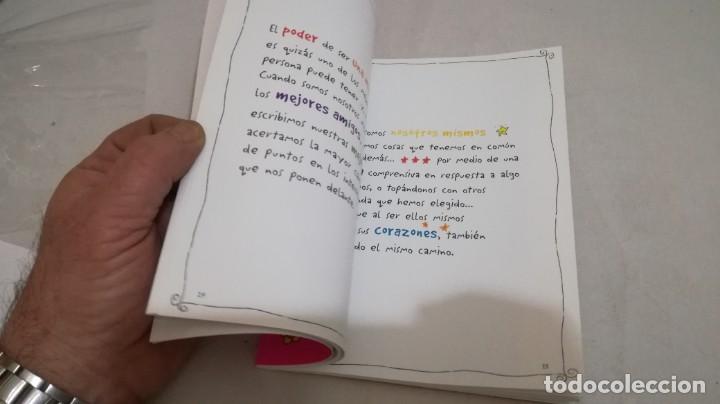 El poder de ser
es quizás uno de los
persona puede tener
Cuando somos nosotros
los mejores amigos
escribimos nuestras
acertamos la mayor
de puntos en los
que nos ponen delante
29
nosotros mismos
mos cosas que tenemos en común
demás... por medio de una
comprensiva en respuesta a algo
os, o topándonos con otros
que hemos elegido...
que al ser ellos mismos
sus corazones, también
do el mismo camino.
todocoleccion